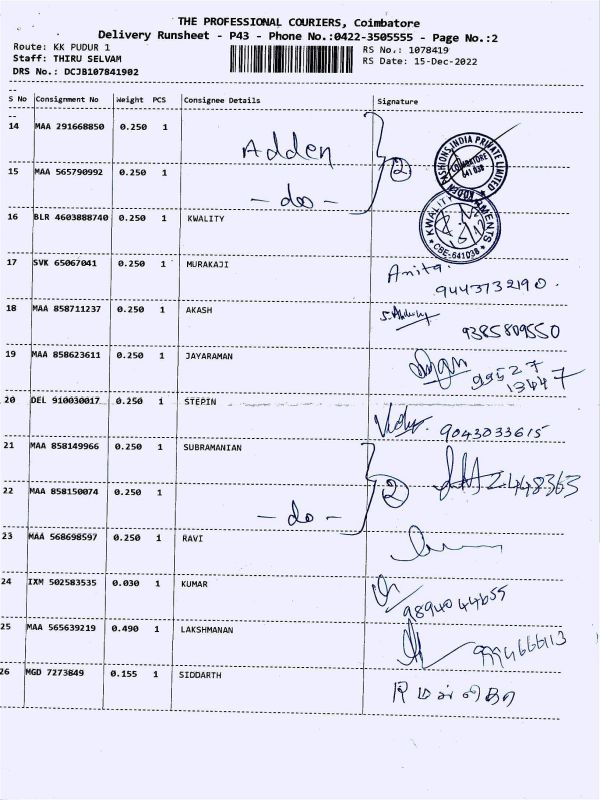 THE PROFESSIONAL COURIERS, Coimbatore
Delivery Runsheet - P43 - Phone No.:0422-3505555 - Page No.:2
Route: KK PUDUR 1
RS No.: 1078419
Staff: THIRU SELVAM
RS Date: 15-Dec-2022
DRS No.: DCJB107841902
S No Consignment No Weight PCS Consignee Details Signature
14 MAA 291668850 0.250 1
Adden 2
KODEN FASHIONS INDIA PRIVATE LIMITED
COIMBATORE
641 038
15 MAA 565790992 0.250 1
- do -
16 BLR 4603888740 0.250 1 KWALITY
KWALITY GARMENTS
CBE-641038
17 SVK 65067041 0.250 1 MURAKAJI Anita
9443732190
18 MAA 858711237 0.250 1 AKASH
9385809550
19 MAA 858623611 0.250 1 JAYARAMAN
99527
13447
20 DEL 910030017 0.250 1 STEPIN
9043033615
21 MAA 858149966 0.250 1 SUBRAMANIAN
2448363
22 MAA 858150074 0.250 1 2
- do -
23 MAA 568698597 0.250 1 RAVI
24 IXM 502583535 0.030 1 KUMAR
9894044655
25 MAA 565639219 0.490 1 LAKSHMANAN
9994666113
26 MGD 7273849 0.155 1 SIDDARTH